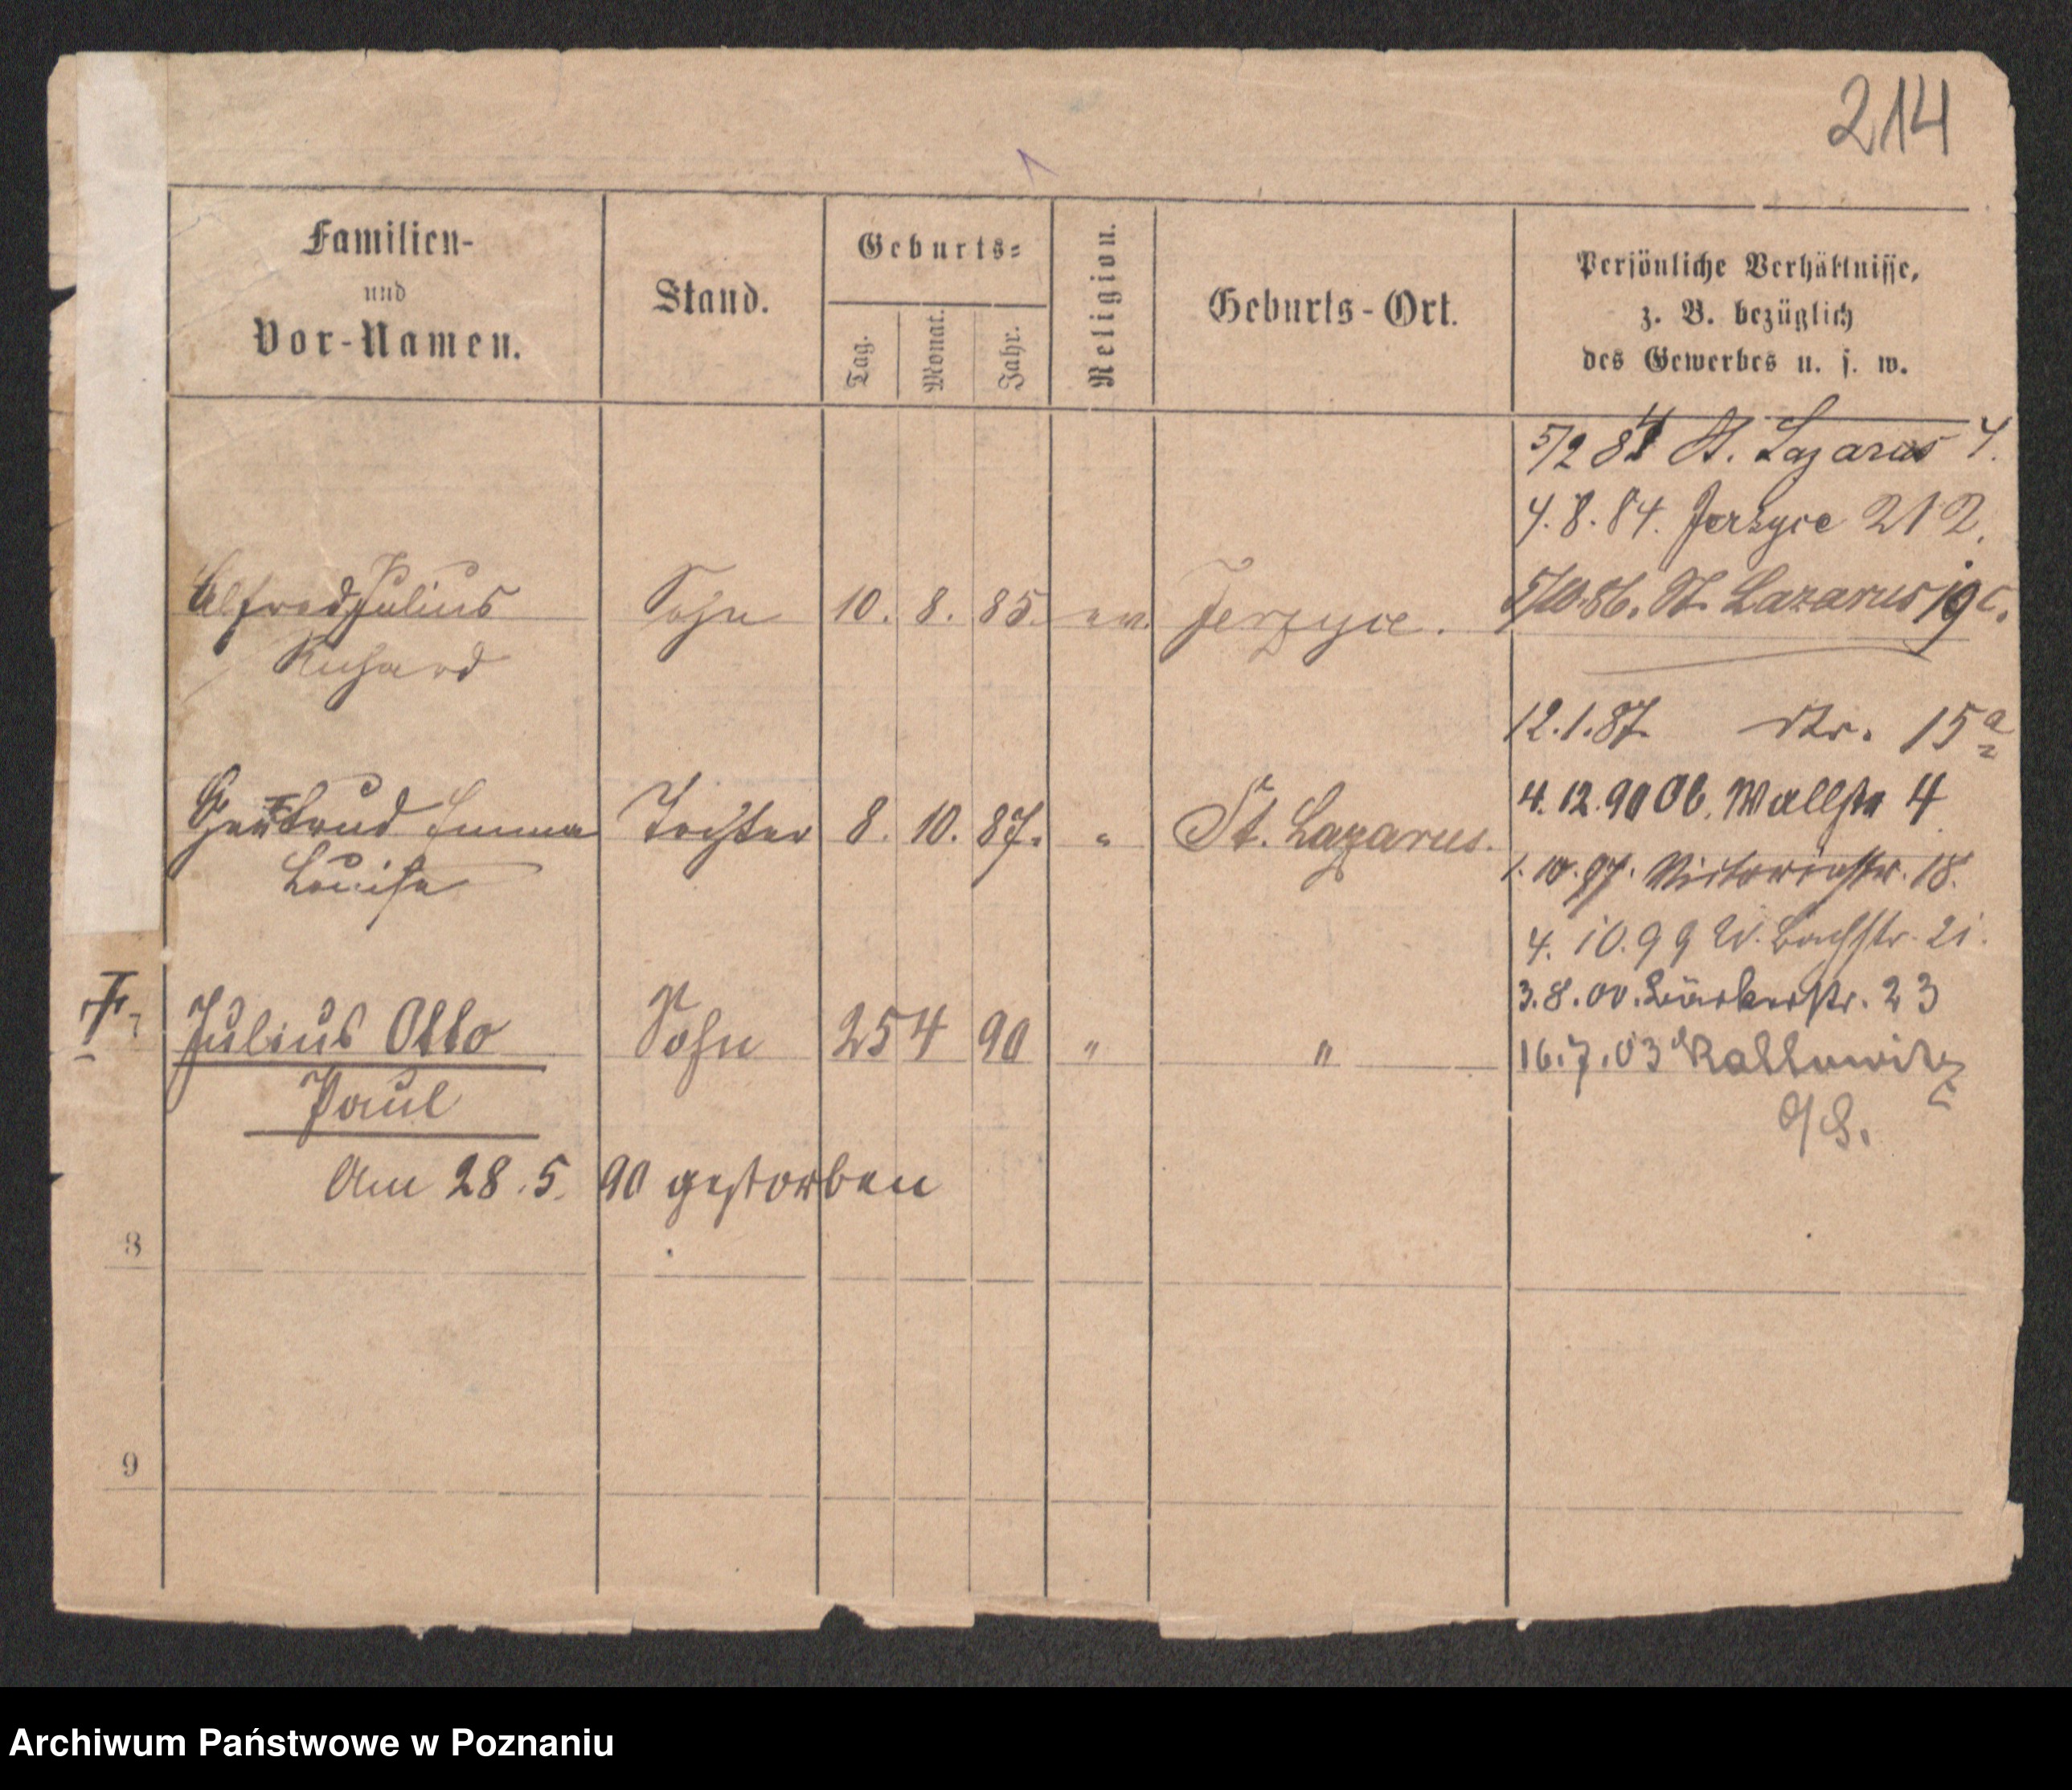 214
Familien-
und
Vor-Namen.
Stand.
Geburts-
Tag.
Monat.
Jahr.
Religion.
Geburts-Ort.
Persönliche Verhältnisse,
z. B. bezüglich
des Gewerbes u. s. w.
5/2 84 St. Lazarus 4.
4.8.84. Jerzyce 212.
Alfred Julius Sohn 10. 8. 85. ev. Jerzyce.
Richard
5/10.86. St. Lazarus 19c.
12.1.87. 15a
Gertrud Emma Tochter 8. 10. 87. " St. Lazarus.
Louise
4.12.90 Ob. Wallstr 4
1.10.97. Victoriastr. 18.
4.10.99 W. Bachstr. 21.
3.8.00. 23
7
Julius Otto Sohn 25 4 90 " "
Paul
16.7.03 Kattowitz
O/S.
Am 28.5.90 gestorben
8
9
Archiwum Państwowe w Poznaniu